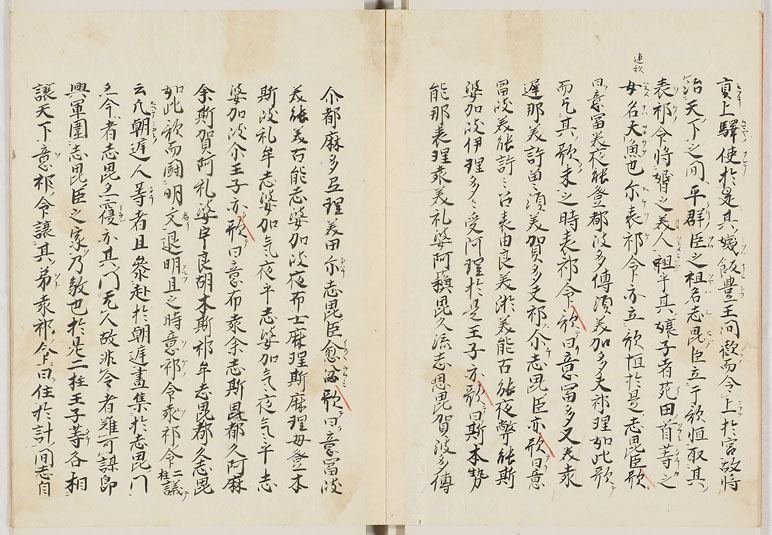 貢上驛使於是其姨飯豊王聞歡而令上於宮故将
治天下之間平群臣之祖名志毘臣立于歌垣取其
袁祁命将婚之美人祖手其嬢子者菟田首等之
女名大魚也尓袁祁命亦立歌垣於是志毘臣歌
曰意富美夜能登都波多傳須美加多夫祁理如此歌
而乞其歌末之時袁祁命歌曰意富多久美袁
遅那美許曽須美賀多夫祁尓志毘臣亦歌曰意
富岐美能許々呂袁由良美淤美能古能夜弊能斯
婆加岐伊理多々受阿理於是王子亦歌曰斯本勢
能那袁理袁美礼婆阿蘓毘久流志毘賀波多傳
尓都麻多弖理美由尓志毘臣愈忿歌曰意富岐
美能美古能志婆加岐夜布士麻理斯麻理母登本
斯岐礼牟志婆加気夜气牟志婆加气夜气牟志
婆加岐尓王子亦歌曰意布袁余志斯毘都久阿麻
余斯賀阿礼婆宇良胡本斯祁牟志毘都久志毘
如此歌而闘明各退明旦之時意祁命袁祁命二柱議
云凡朝廷人等者旦参赴於朝廷晝集於志毘門
亦今者志毘必寝亦其門无人故非今者難可謀即
興軍圍志毘臣之家乃敦也於是二柱王子等各相
讓天下意祁命讓其弟袁祁命曰住於針間志自